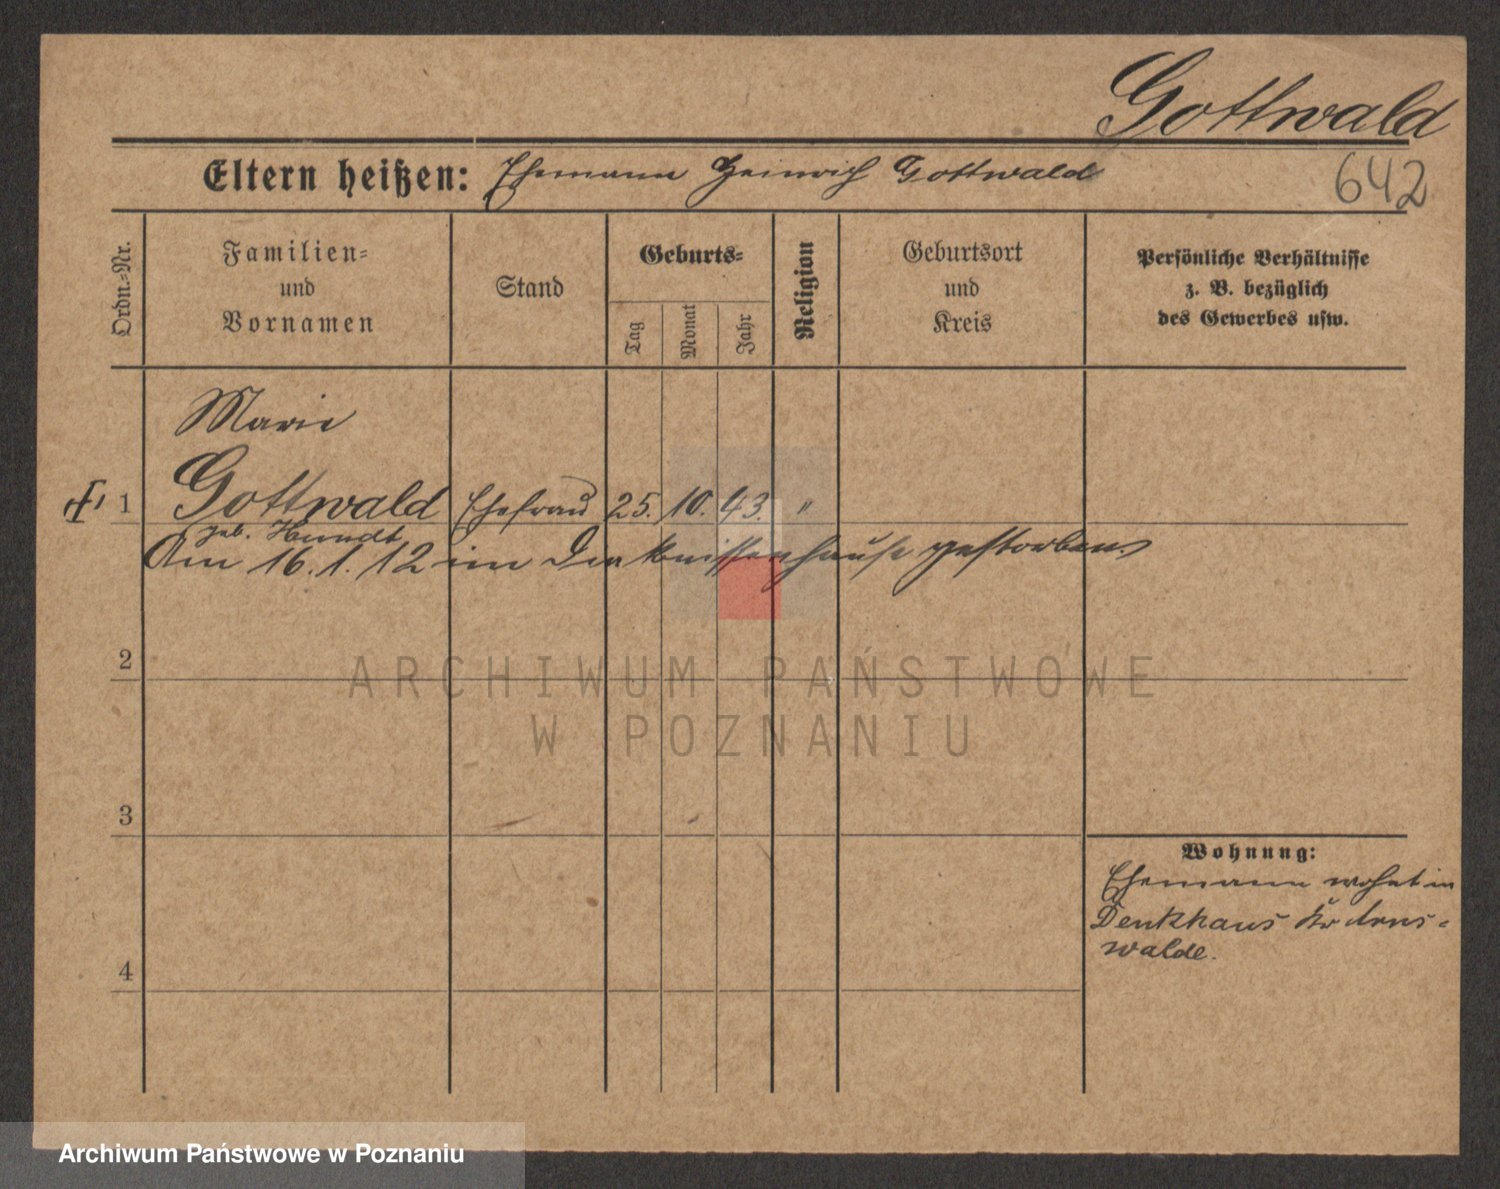 Gottwald
Eltern heißen: Ehemann Heinrich Gottwald
642
Ordn.-Nr.
Familien-
und
Vornamen
Stand
Geburts-
Tag
Monat
Jahr
Religion
Geburtsort
und
Kreis
Persönliche Verhältnisse
z. B. bezüglich
des Gewerbes usw.
Marie
1 Gottwald Ehefrau 25. 10. 43. "
geb. Hundt
Am 16. 1. 12 im Diakonissenhause gestorben.
2
3
4
Wohnung:
Ehemann wohnt in
Denkhaus Kr Arns-
walde.
ARCHIWUM PAŃSTWOWE
W POZNANIU
Archiwum Państwowe w Poznaniu